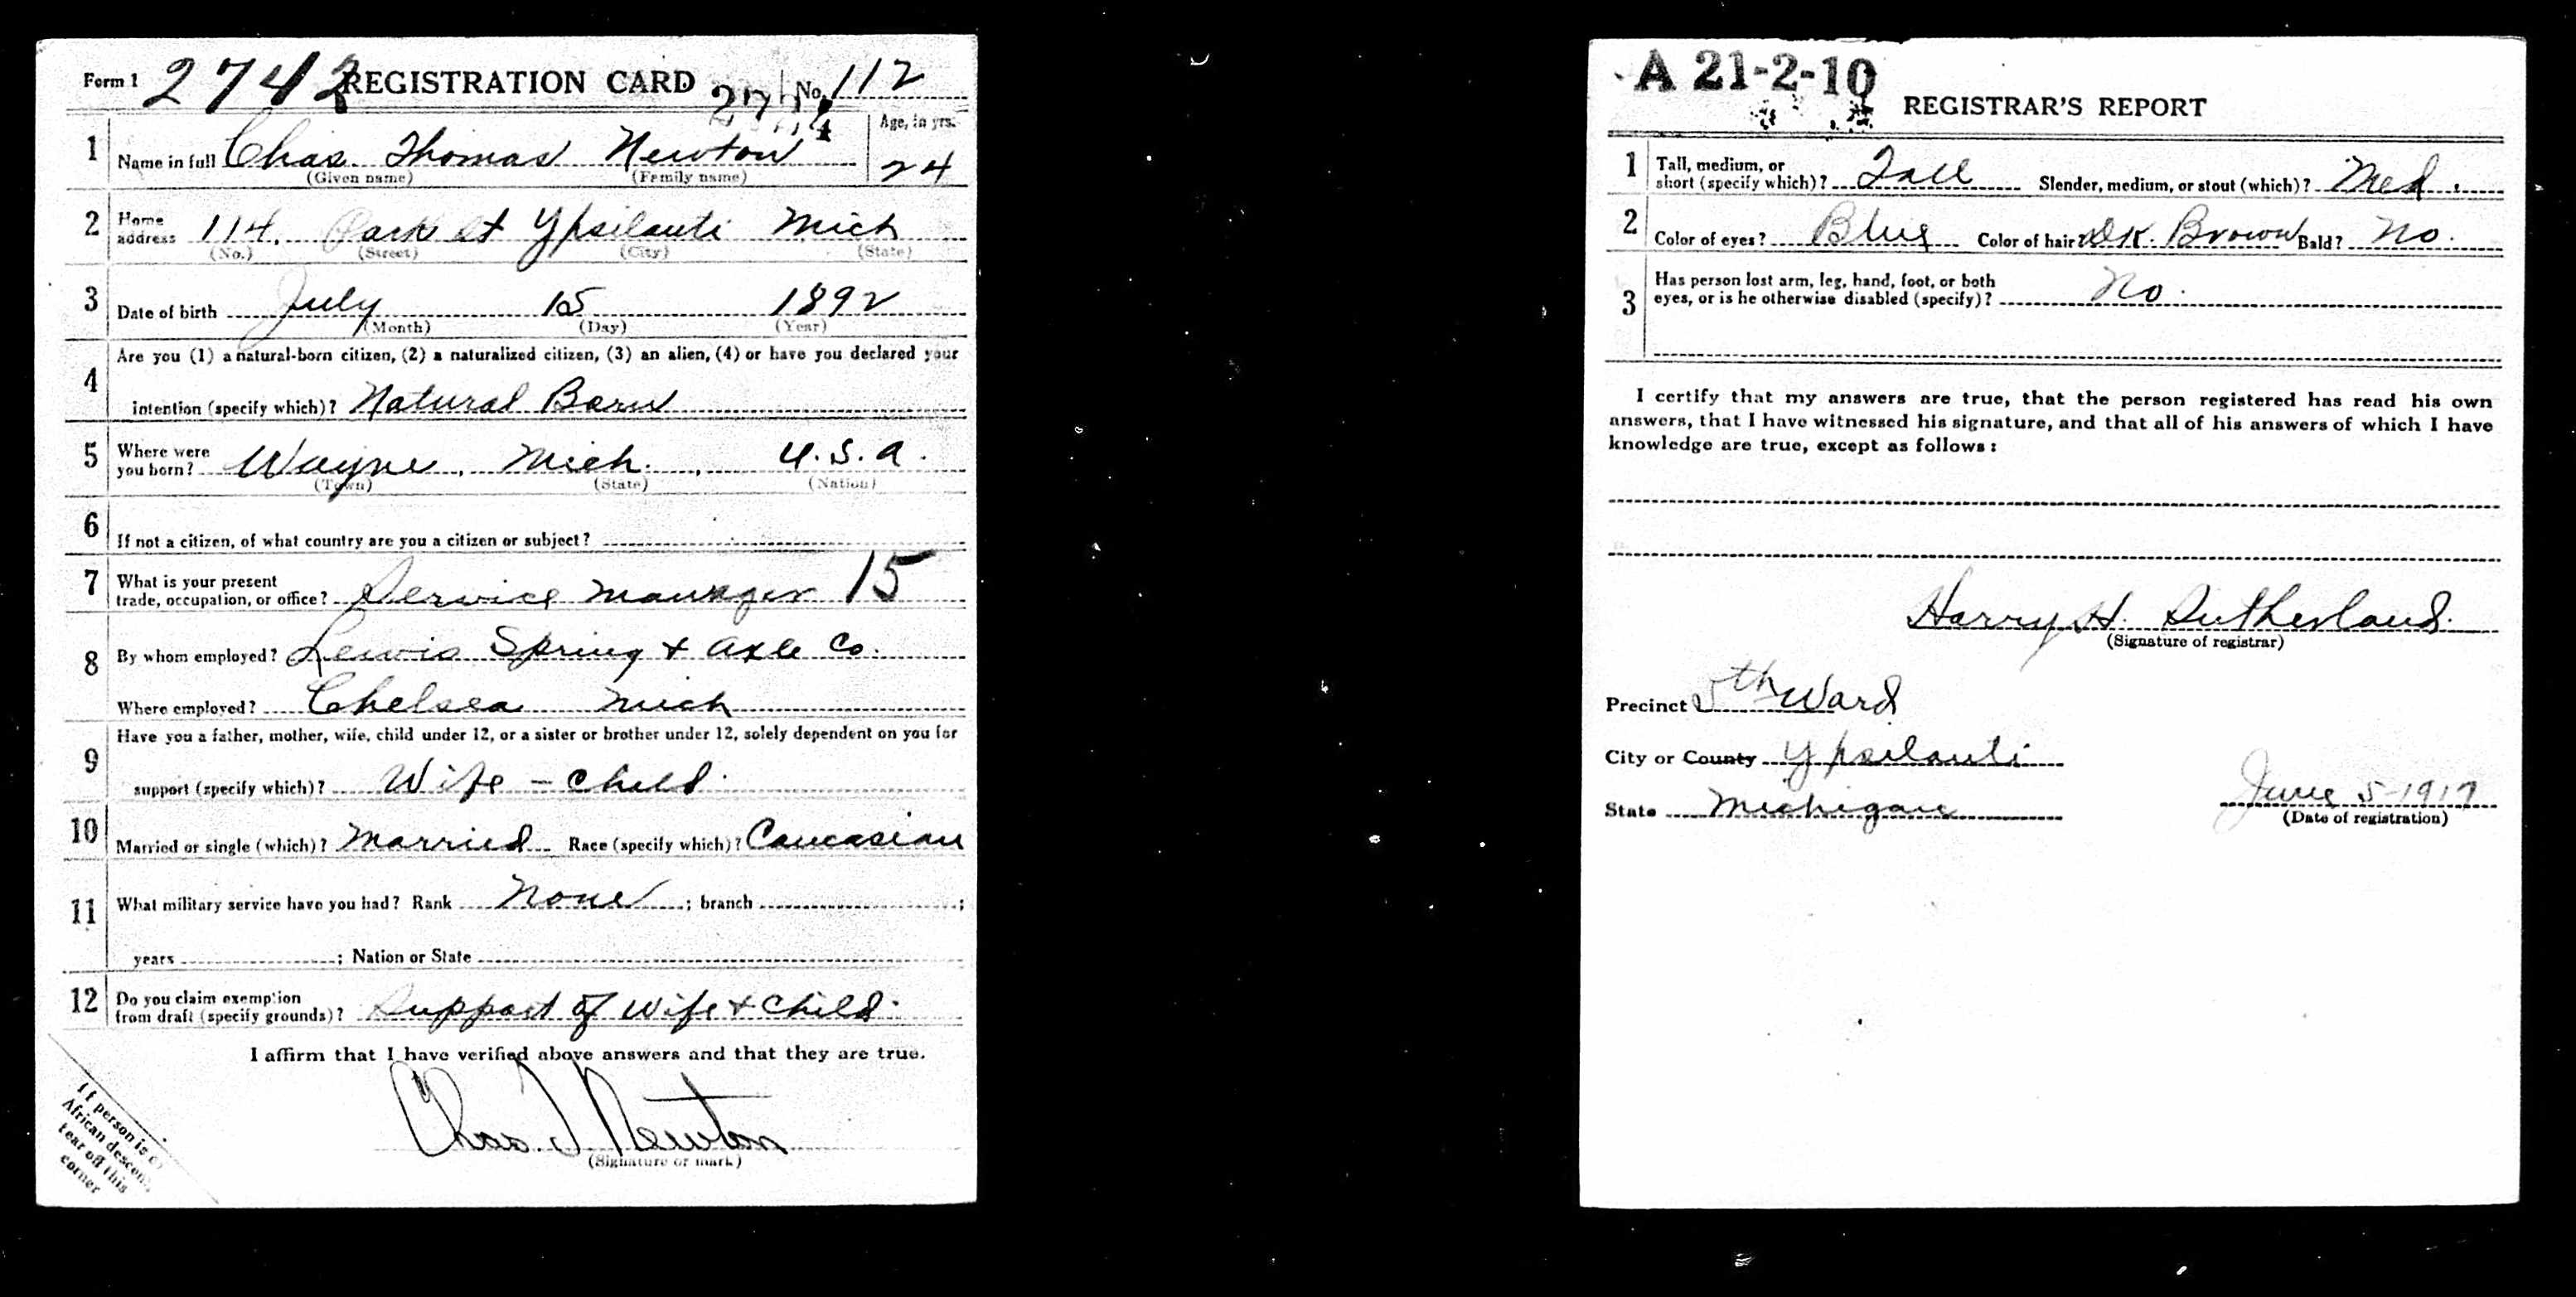 Form 1 2742 REGISTRATION CARD No. 112
1 Name in full Chas. Thomas Newton Age, in yrs. 24
(Given name) (Family name)
2 Home address 114. Park st Ypsilanti Mich
(No.) (Street) (City) (State)
3 Date of birth July 15 1892
(Month) (Day) (Year)
4 Are you (1) a natural-born citizen, (2) a naturalized citizen, (3) an alien, (4) or have you declared your
intention (specify which)? Natural Born
5 Where were you born? Wayne, Mich., U.S.A.
(Town) (State) (Nation)
6 If not a citizen, of what country are you a citizen or subject?
7 What is your present trade, occupation, or office? Service Manager 15
8 By whom employed? Lewis Spring + Axle Co.
Where employed? Chelsea Mich
9 Have you a father, mother, wife, child under 12, or a sister or brother under 12, solely dependent on you for
support (specify which)? Wife - child.
10 Married or single (which)? Married Race (specify which)? Caucasian
11 What military service have you had? Rank None ; branch ;
years ; Nation or State
12 Do you claim exemption from draft (specify grounds)? Support of Wife + Child.
I affirm that I have verified above answers and that they are true.
Chas. T Newton
(Signature or mark)
If person is of
African descent,
tear off this
corner
A 21-2-10
REGISTRAR'S REPORT
1 Tall, medium, or short (specify which)? Tall Slender, medium, or stout (which)? Med.
2 Color of eyes? Blue Color of hair? Dk. Brown Bald? No.
3 Has person lost arm, leg, hand, foot, or both eyes, or is he otherwise disabled (specify)? No.
I certify that my answers are true, that the person registered has read his own
answers, that I have witnessed his signature, and that all of his answers of which I have
knowledge are true, except as follows:
Harry H. Sutherland.
(Signature of registrar)
Precinct 5th Ward
City or County Ypsilanti
State Michigan June 5-1917
(Date of registration)